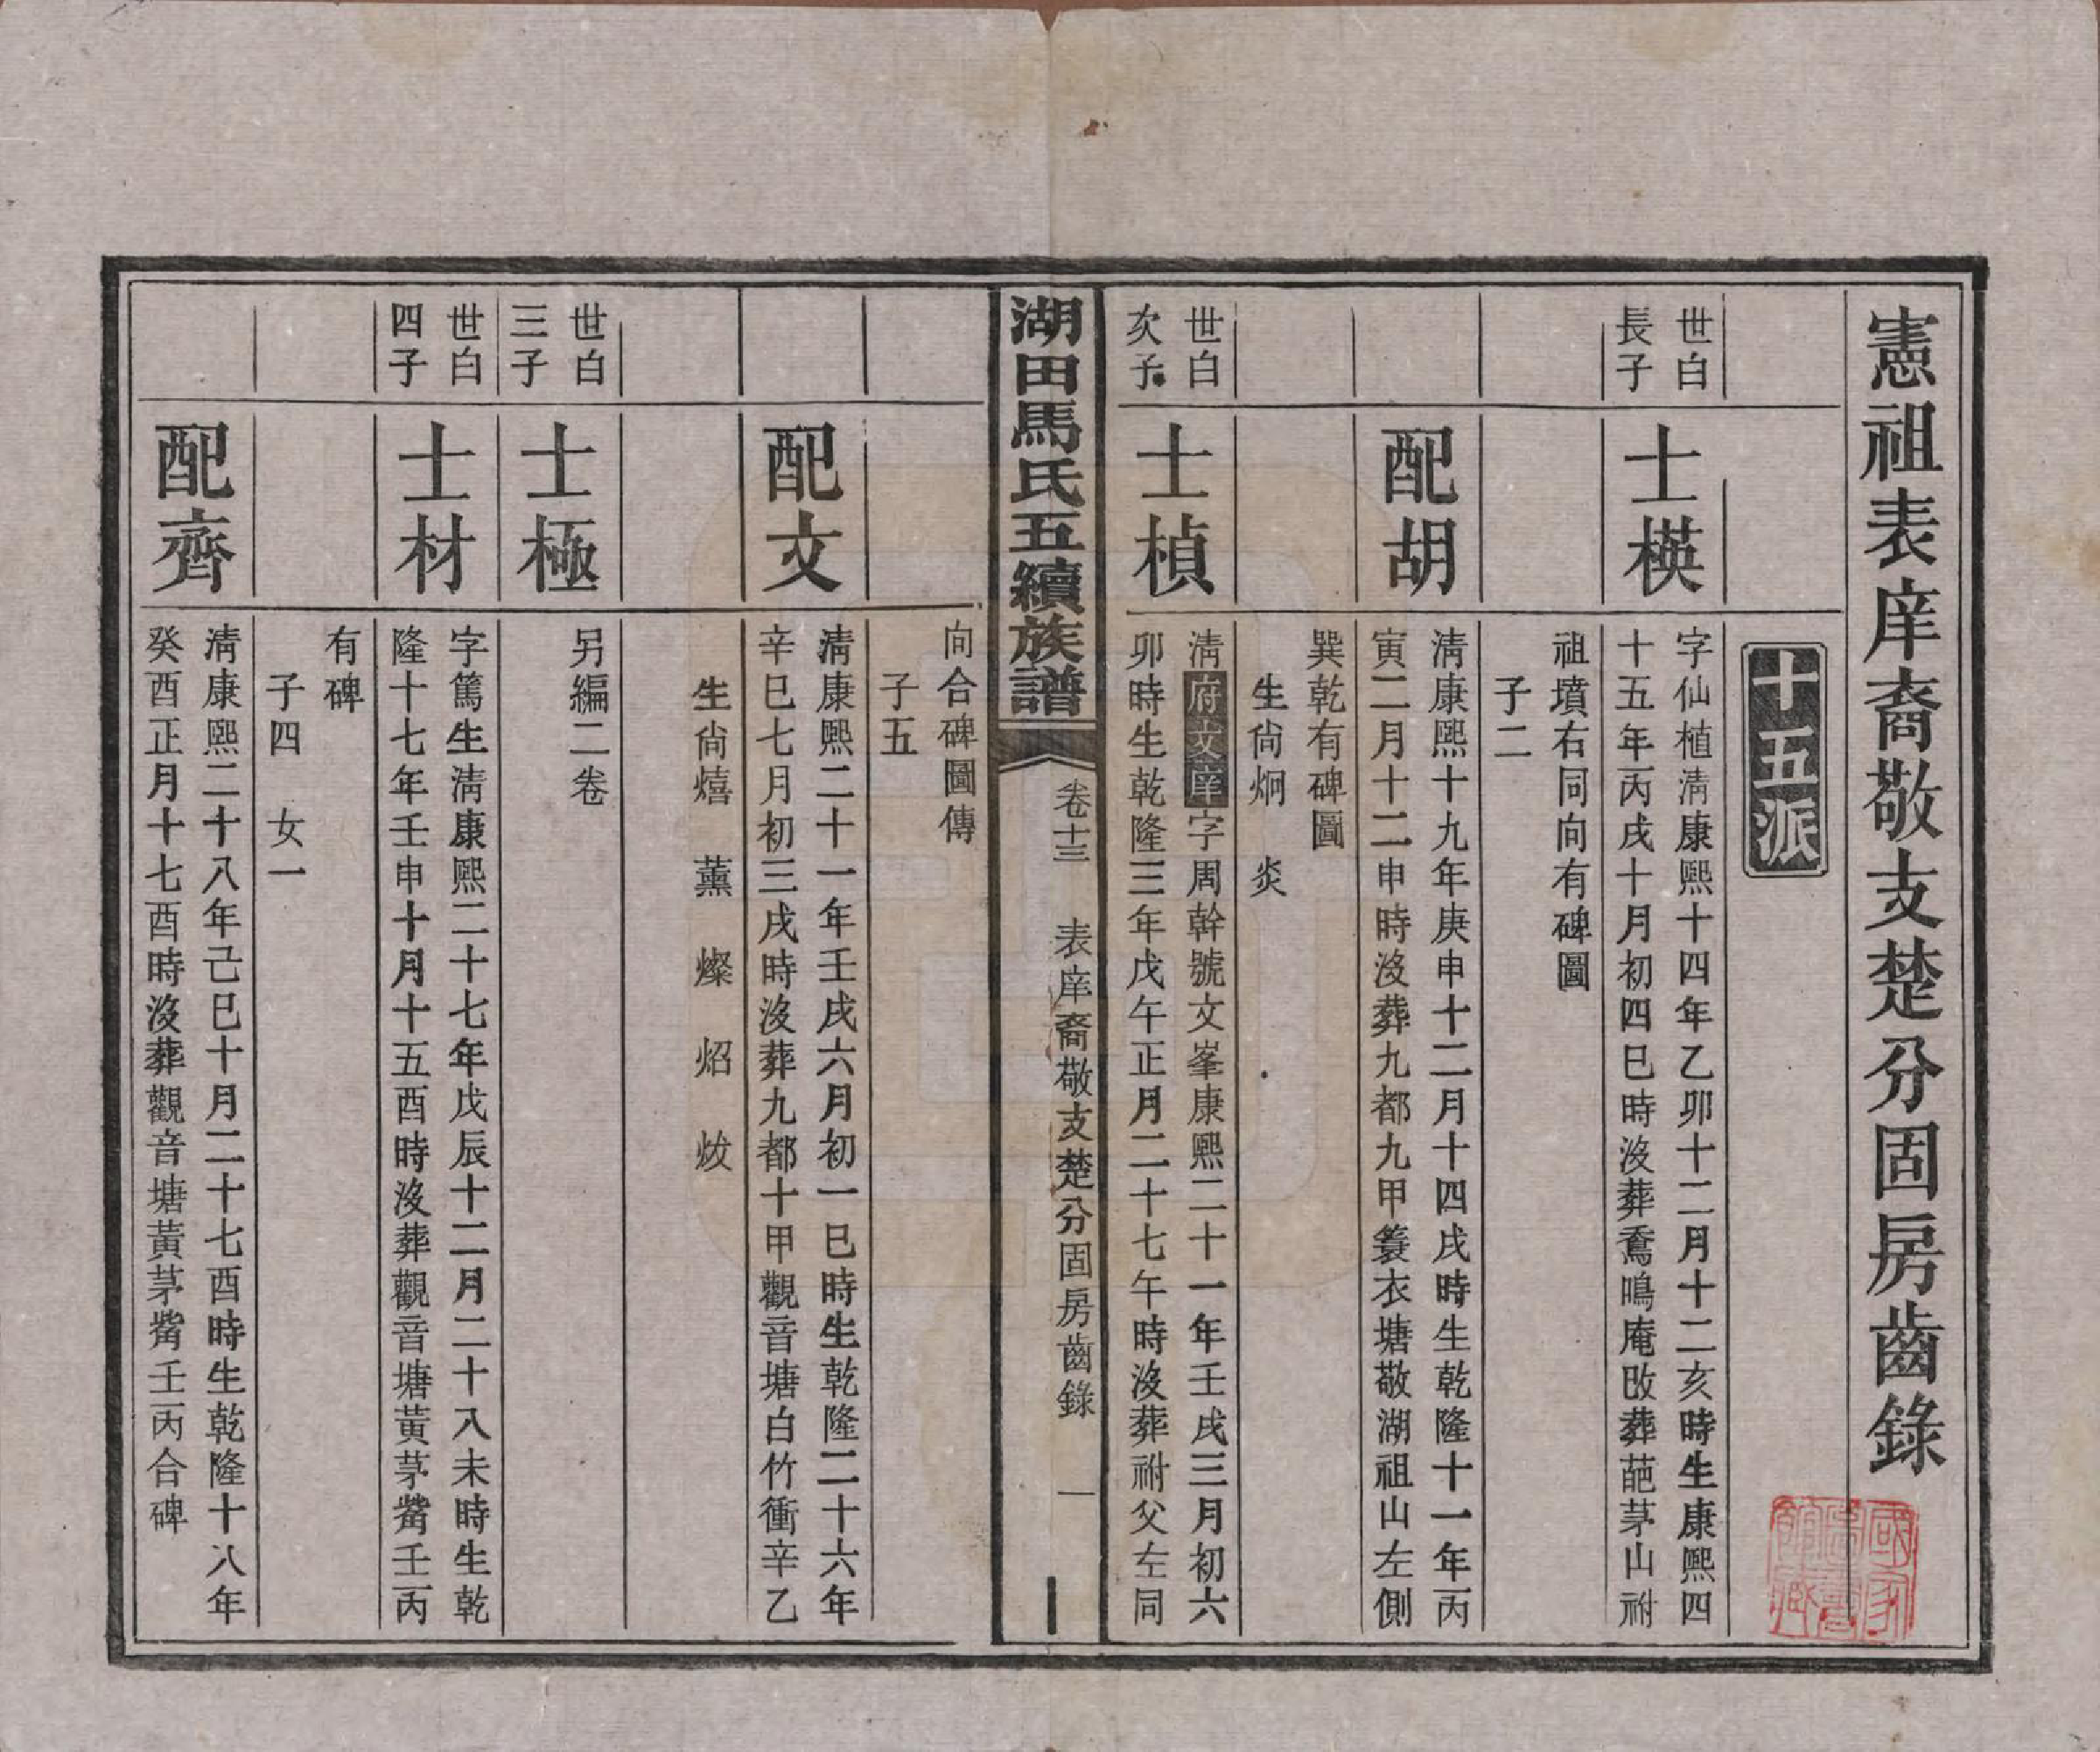 憲祖表庠裔敬支楚分固房齒錄
十五派
世白
長子
士楧
字仙植清康熙十四年乙卯十二月十二亥時生康熙四
十五年丙戌十月初四巳時沒葬鴌鳴庵改葬葩茅山祔
祖墳右同向有碑圖
子二
配胡
清康熙十九年庚申十二月十四戌時生乾隆十一年丙
寅二月十二申時沒葬九都九甲簑衣塘敬湖祖山左側
巽乾有碑圖
生尙炯 炎
世白
次子
士楨
清府文庠字周幹號文峯康熙二十一年壬戌三月初六
卯時生乾隆三年戊午正月二十七午時沒葬祔父左同
湖田馬氏五續族譜
卷十三 表庠裔敬支楚分固房齒錄 一
向合碑圖傳
子五
配文
清康熙二十一年壬戌六月初一巳時生乾隆二十六年
辛巳七月初三戌時沒葬九都十甲觀音塘白竹衝辛乙
生尙熺 薰 燦 炤 炦
世白
三子
士極
另編二卷
世白
四子
士材
字篤生清康熙二十七年戊辰十二月二十八未時生乾
隆十七年壬申十月十五酉時沒葬觀音塘黃茅觜壬丙
有碑
子四 女一
配齊
清康熙二十八年己巳十月二十七酉時生乾隆十八年
癸酉正月十七酉時沒葬觀音塘黃茅觜壬丙合碑
國家
圖書
館藏